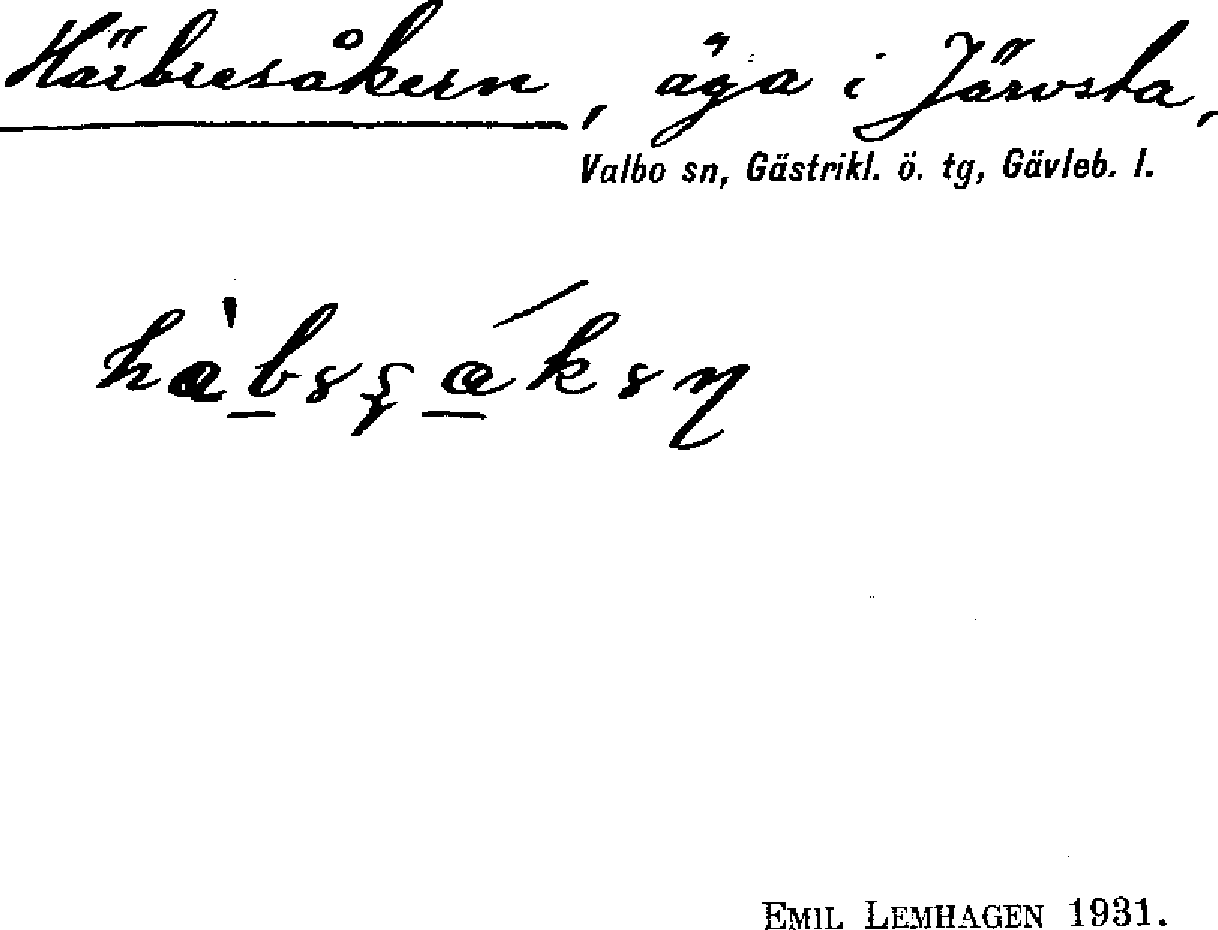 Härbresåkern, äga i Järvsta,
Valbo sn, Gästrikl. ö. tg, Gävleb. l.
EMIL LEMHAGEN 1931.